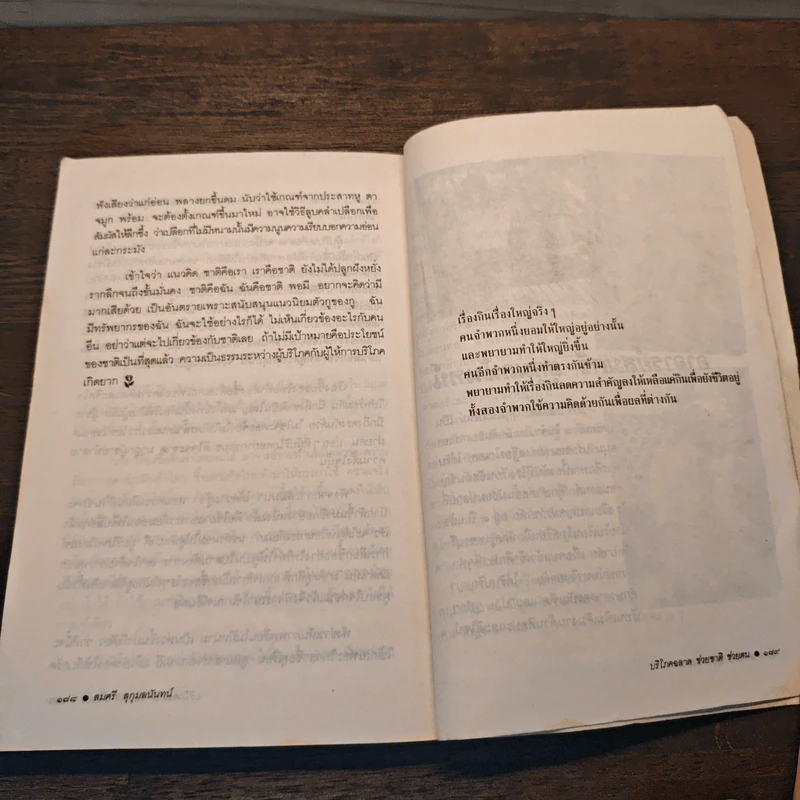 ฟังเสียงว่าแก่อ่อน พลางยกขึ้นดม นับว่าใช้เกณฑ์จากประสาทหู ตา
จมูก พร้อม จะต้องตั้งเกณฑ์ขึ้นมาใหม่ อาจใช้วิธีลูบคลำเปลือกเพื่อ
สัมผัสให้ลึกซึ้ง ว่าเปลือกที่ไม่มีหนามนั้นมีความนูนความเรียบบอกความอ่อน
แก่ละกระมัง
เข้าใจว่า แนวคิด ชาติคือเรา เราคือชาติ ยังไม่ได้ปลูกฝังหยั่ง
รากลึกจนถึงขั้นมั่นคง ชาติคือฉัน ฉันคือชาติ พอมี อยากจะคิดว่ามี
มากเสียด้วย เป็นอันตรายเพราะสนับสนุนแนวนิยมตัวกูของกู ฉัน
มีทรัพยากรของฉัน ฉันจะใช้อย่างไรก็ได้ ไม่เห็นเกี่ยวข้องอะไรกับคน
อื่น อย่าว่าแต่จะไปเกี่ยวข้องกับชาติเลย ถ้าไม่มีเป้าหมายคือประโยชน์
ของชาติเป็นที่สุดแล้ว ความเป็นธรรมระหว่างผู้บริโภคกับผู้ให้การบริโภค
เกิดยาก
๑๘๘ ● สมศรี สุกุมลนันทน์
เรื่องกินเรื่องใหญ่จริง ๆ
คนจำพวกหนึ่งยอมให้ใหญ่อยู่อย่างนั้น
และพยายามทำให้ใหญ่ยิ่งขึ้น
คนอีกจำพวกหนึ่งทำตรงกันข้าม
พยายามทำให้เรื่องกินลดความสำคัญลงให้เหลือแค่กินเพื่อยังชีวิตอยู่
ทั้งสองจำพวกใช้ความคิดด้วยกันเพื่อผลที่ต่างกัน
บริโภคฉลาด ช่วยชาติ ช่วยตน ● ๑๘๙